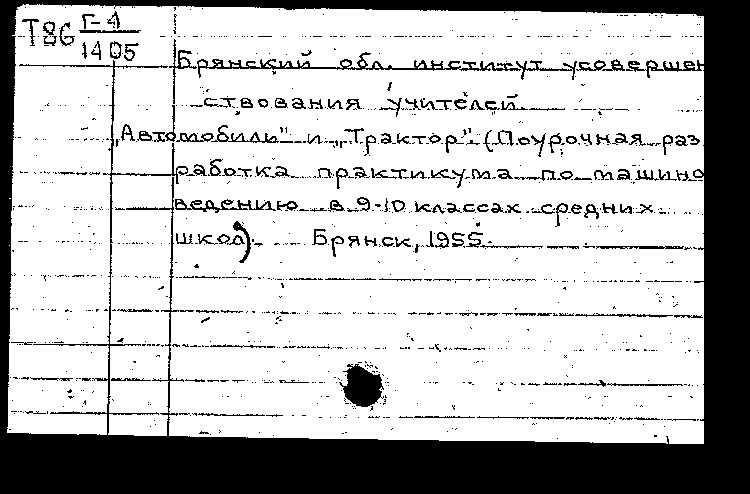 Т86 Г-4
1405
Брянский обл. институт усовершен
ствования учителей.
„Автомобиль" и „Трактор". (Поурочная раз
работка практикума по машино
ведению в 9-10 классах средних
школ). Брянск, 1955.